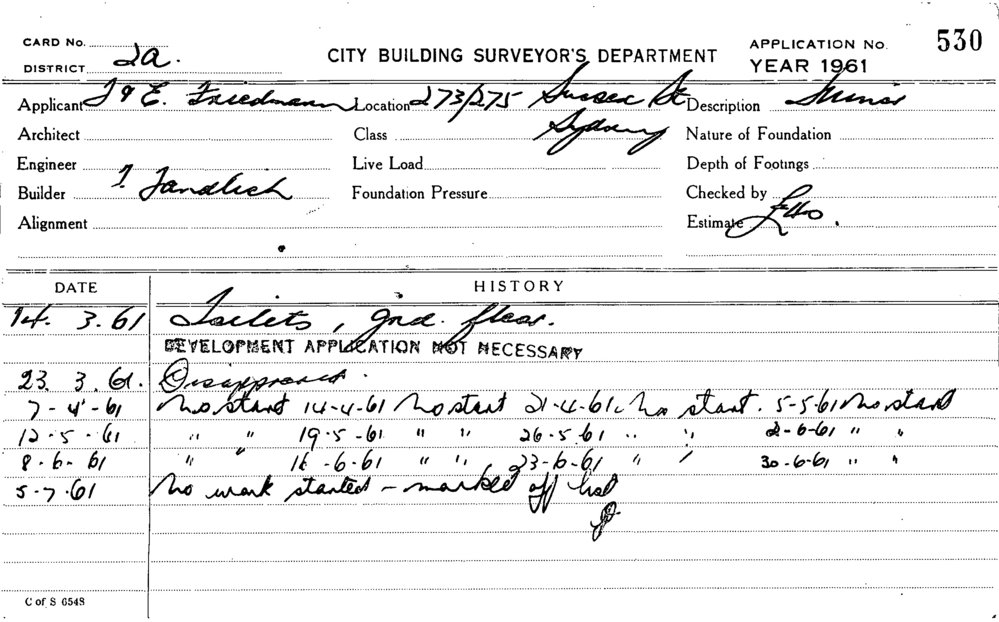 CARD No.
CITY BUILDING SURVEYOR'S DEPARTMENT
APPLICATION No. 530
DISTRICT 2a.
YEAR 1961
Applicant I & E. Friedmann Location 273/275 Sussex St Description Minor
Architect Class Sydney Nature of Foundation
Engineer Live Load Depth of Footings
Builder Foundation Pressure Checked by
Alignment Estimate £40.
DATE HISTORY
14. 3. 61 Toilets, gnd. floor.
DEVELOPMENT APPLICATION NOT NECESSARY
23. 3. 61. Disapproved.
7-4-61 No start 14-4-61 No start 21-4-61 No start. 5-5-61 No start
12-5-61 " " 19-5-61 " " 26-5-61 " " 2-6-61 " "
8-6-61 " " 16-6-61 " " 23-6-61 " " 30-6-61 " "
5-7-61 No work started - marked off list
C of S 6548